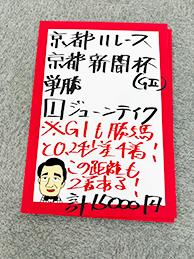 京都11レース
京都新聞杯
単勝(GⅡ)
1ジューンテイク
※GⅠも勝馬
と0.4秒差4着!
この距離も
2着ある!
計15000円